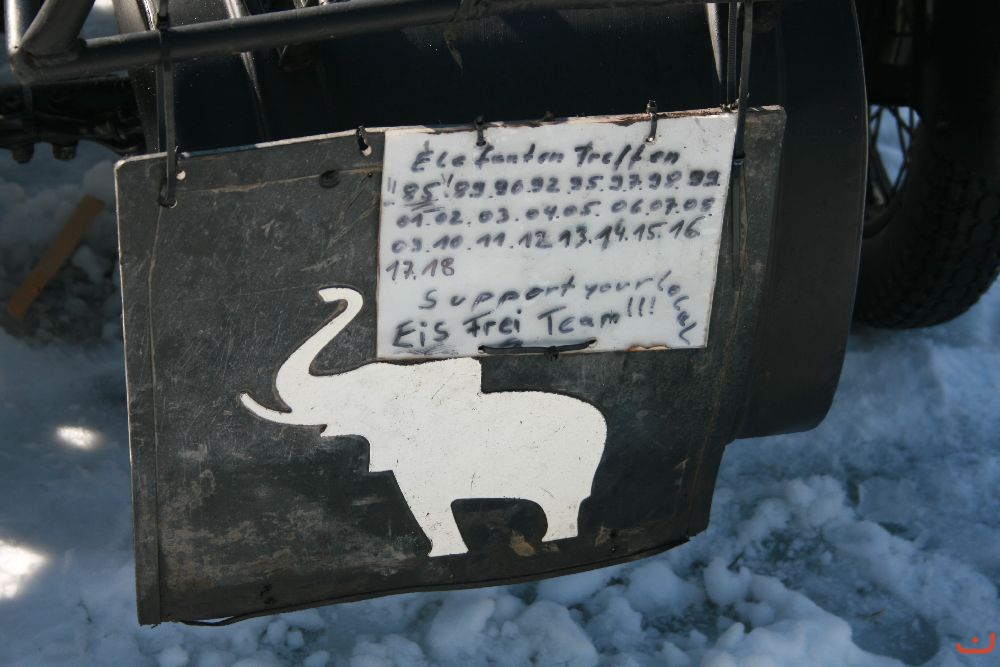 Elefanten Treffen
"85"! 89.90.92.95.97.98.99
01.02.03.04.05.06.07.08
09.10.11.12.13.14.15.16
17.18
Support your local
Eis Frei Team!!!